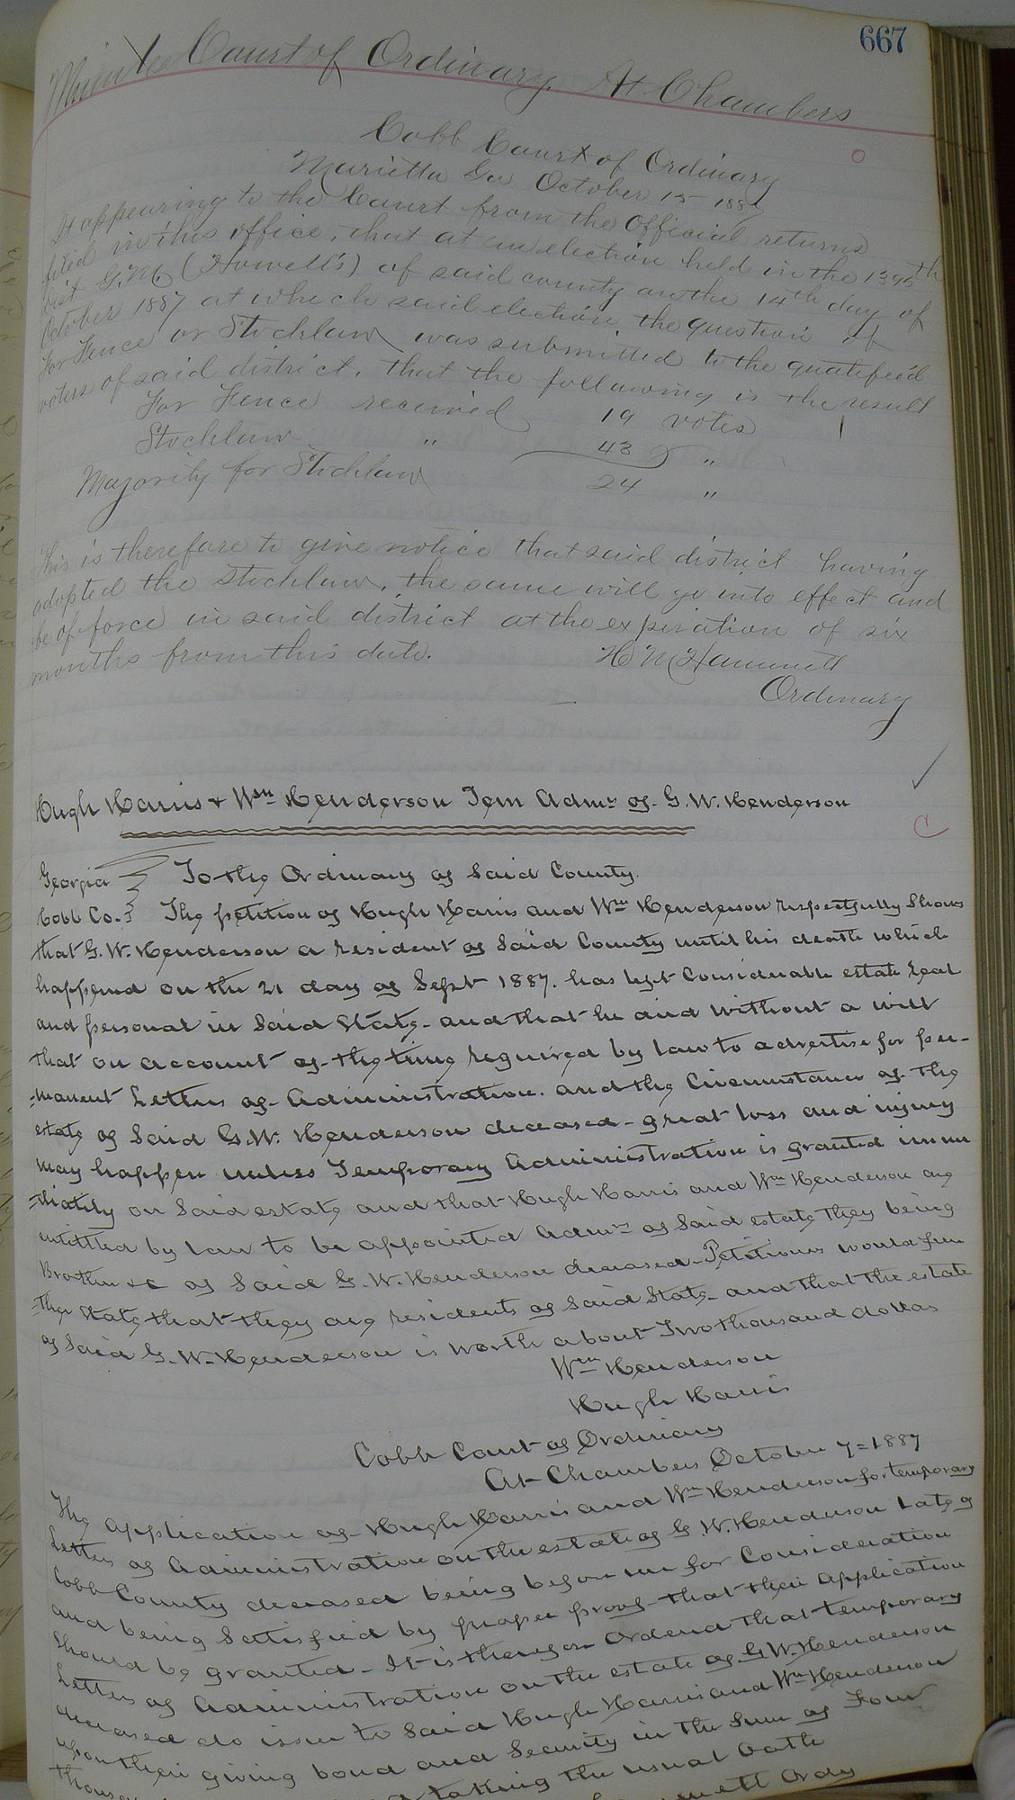 667
Minutes Court of Ordinary, At Chambers
Cobb Court of Ordinary
Marietta Ga October 15 1887
It appearing to the Court from the Official returns
filed in this office, that at an election held in the 1395th
Dist G.M. (Howell's) of said county on the 14th day of
October 1887 at which said election, the question of
For Fence or Stocklaw was submitted to the qualified
voters of said district, that the following is the result
For Fence received 19 votes
Stocklaw " 43 "
Majority for Stocklaw 24 "
This is therefore to give notice that said district having
adopted the stocklaw, the same will go into effect and
be of force in said district at the expiration of six
months from this date.
H M Hammett
Ordinary
Hugh Harris & Wm Henderson Tem Admr of G. W. Henderson
Georgia } To the Ordinary of Said County.
Cobb Co. } The petition of Hugh Harris and Wm Henderson respectfully Shows
that G. W. Henderson a resident of Said County until his death which
happened on the 21 day of Sept 1887. has left Considerable estate real
and personal in Said State - and that he died without a will
that on account of the time required by law to advertise for per-
-manent Letters of Administration. and the Circumstances of the
estate of Said G. W. Henderson deceased - great loss and injury
may happen unless Temporary Administration is granted imme
-diately on Said estate and that Hugh Harris and Wm Henderson are
entitled by law to be appointed Admrs of Said estate they being
Brother & c of Said G. W. Henderson deceased - Petitioners would fur
-ther State that they are residents of Said State - and that the estate
of Said G. W. Henderson is worth about Two thousand dollars
Wm Henderson
Hugh Harris
Cobb Court of Ordinary
At Chambers October 7 = 1887
The application of Hugh Harris and Wm Henderson for temporary
Letters of Administration on the estate of G W. Henderson late of
Cobb County deceased being before me for Consideration
and being Satisfied by proper proof that their application
Should be granted - It is therefore Ordered that temporary
Letters of Administration on the estate of G. W. Henderson
deceased do issue to Said Hugh Harris and Wm Henderson
upon their giving bond and Security in the Sum of Four
taking the usual Oath
Ordy